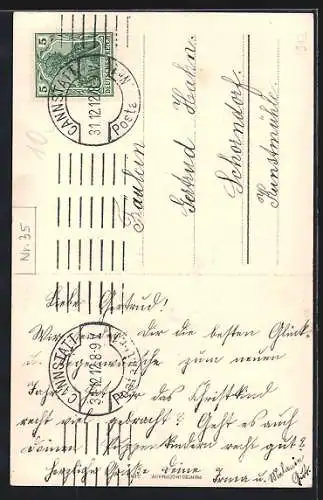 5 5
DEUTSCHES REICH
CANNSTATT
31.12.12.8-9V.
Fräulein
Gertrud Hahn.
Schorndorf
Kunstmühle
Nr. 35
CANNSTATT
31.12.12.8-9V.
Liebe Gertrud!
Wir senden Dir die besten Glück-
u. Segenswünsche zum neuen
Jahr. Hat Dir das Christkind
recht viel gebracht? Geht es auch
Deinen Puppenkindern recht gut?
Herzliche Grüße Deine Irma u. Melanie